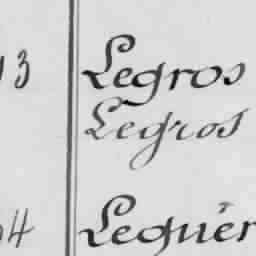 13 Legros
Legros
04 Leguer